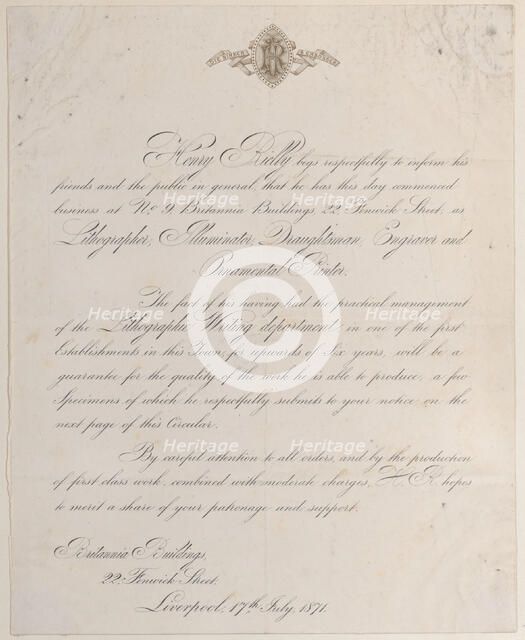 DIE SINKER & ENGRAVER
HR
Henry Rielly begs respectfully to inform his
friends and the public in general, that he has this day commenced
business at No. 9, Britannia Buildings, 22, Fenwick Street, as
Lithographer, Illuminator, Draughtsman, Engraver and
Ornamental Printer.
The fact of his having had the practical management
of the Lithographic Writing department in one of the first
Establishments in this Town, for upwards of Six years, will be a
guarantee for the quality of the work he is able to produce, a few
Specimens of which he respectfully submits to your notice on the
next page of this Circular.
By careful attention to all orders, and by the production
of first class work, combined with moderate charges, H. R. hopes
to merit a share of your patronage and support.
Britannia Buildings,
22, Fenwick Street,
Liverpool, 17th July, 1871.
Heritage
Heritage
Heritage
Heritage
Heritage
Heritage
Heritage
Heritage
Heritage
Images
Images
Images